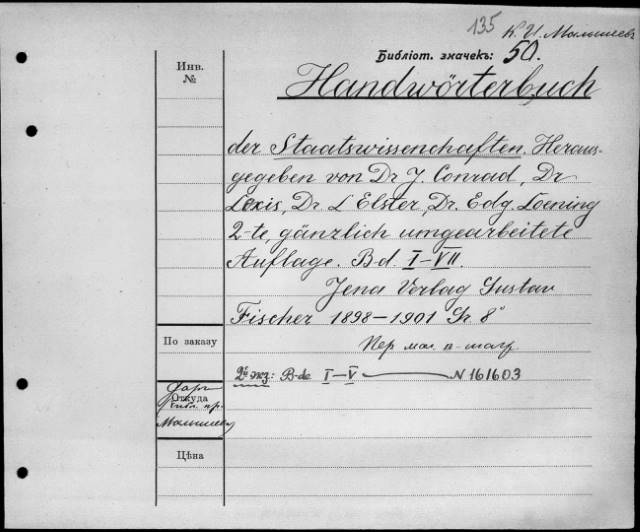 135 К. И. Малышевъ
Библіот. значекъ: 50.
Инв.
№
Handwörterbuch
der Staatswissenchaften. Heraus-
gegeben von Dr J. Conrad, Dr
Lexis, Dr. L Elster, Dr. Edg. Loening
2-te gänzlich umgearbeitete
Auflage. B-d. I–VII.
Jena Verlag Gustav
Fischer 1898–1901 Gr. 8°
По заказу
Пер
2й экз: B-de I–V — N 161603
Даръ
Откуда
библ. пр.
Малышева
Цѣна